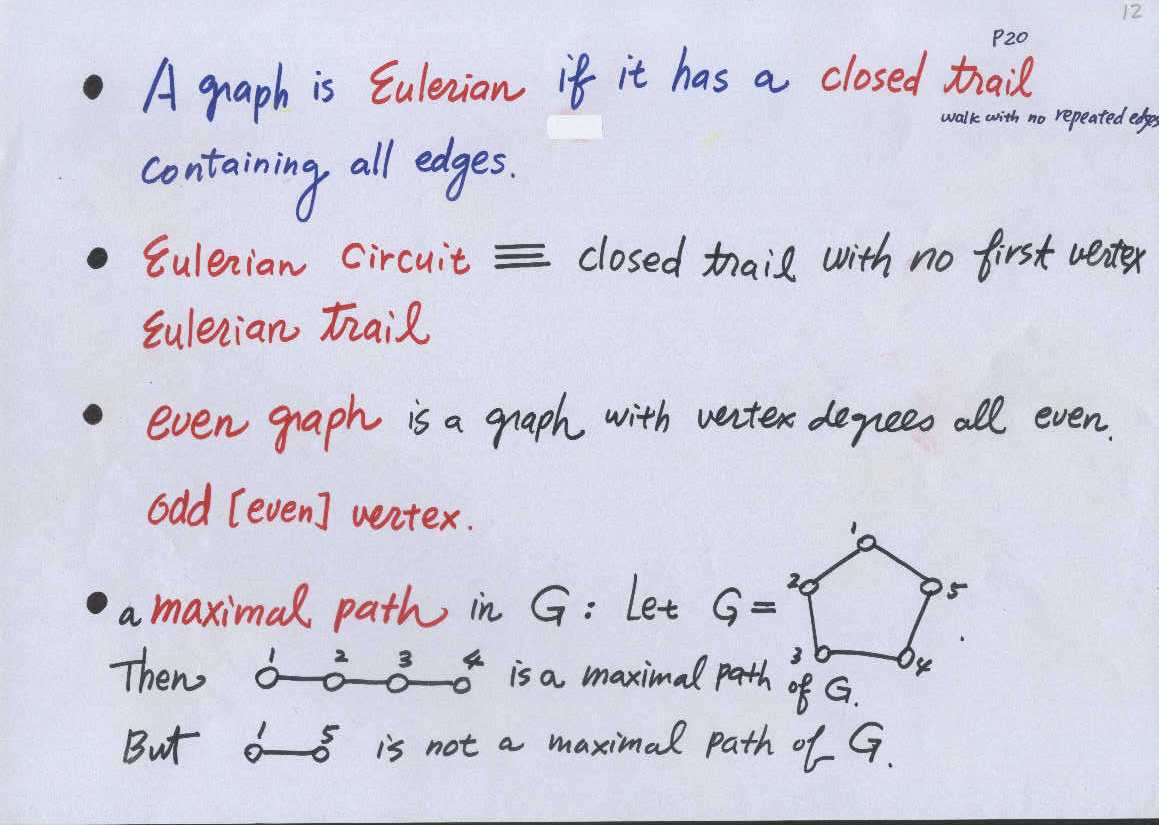 12
P20
• A graph is Eulerian if it has a closed trail
walk with no repeated edges
containing all edges.
• Eulerian circuit ≡ closed trail with no first vertex
Eulerian trail
• even graph is a graph with vertex degrees all even.
odd [even] vertex.
• a maximal path in G: Let G = 1 2 3 4 5 .
Then 1 2 3 4 is a maximal path of G.
But 1 5 is not a maximal path of G.